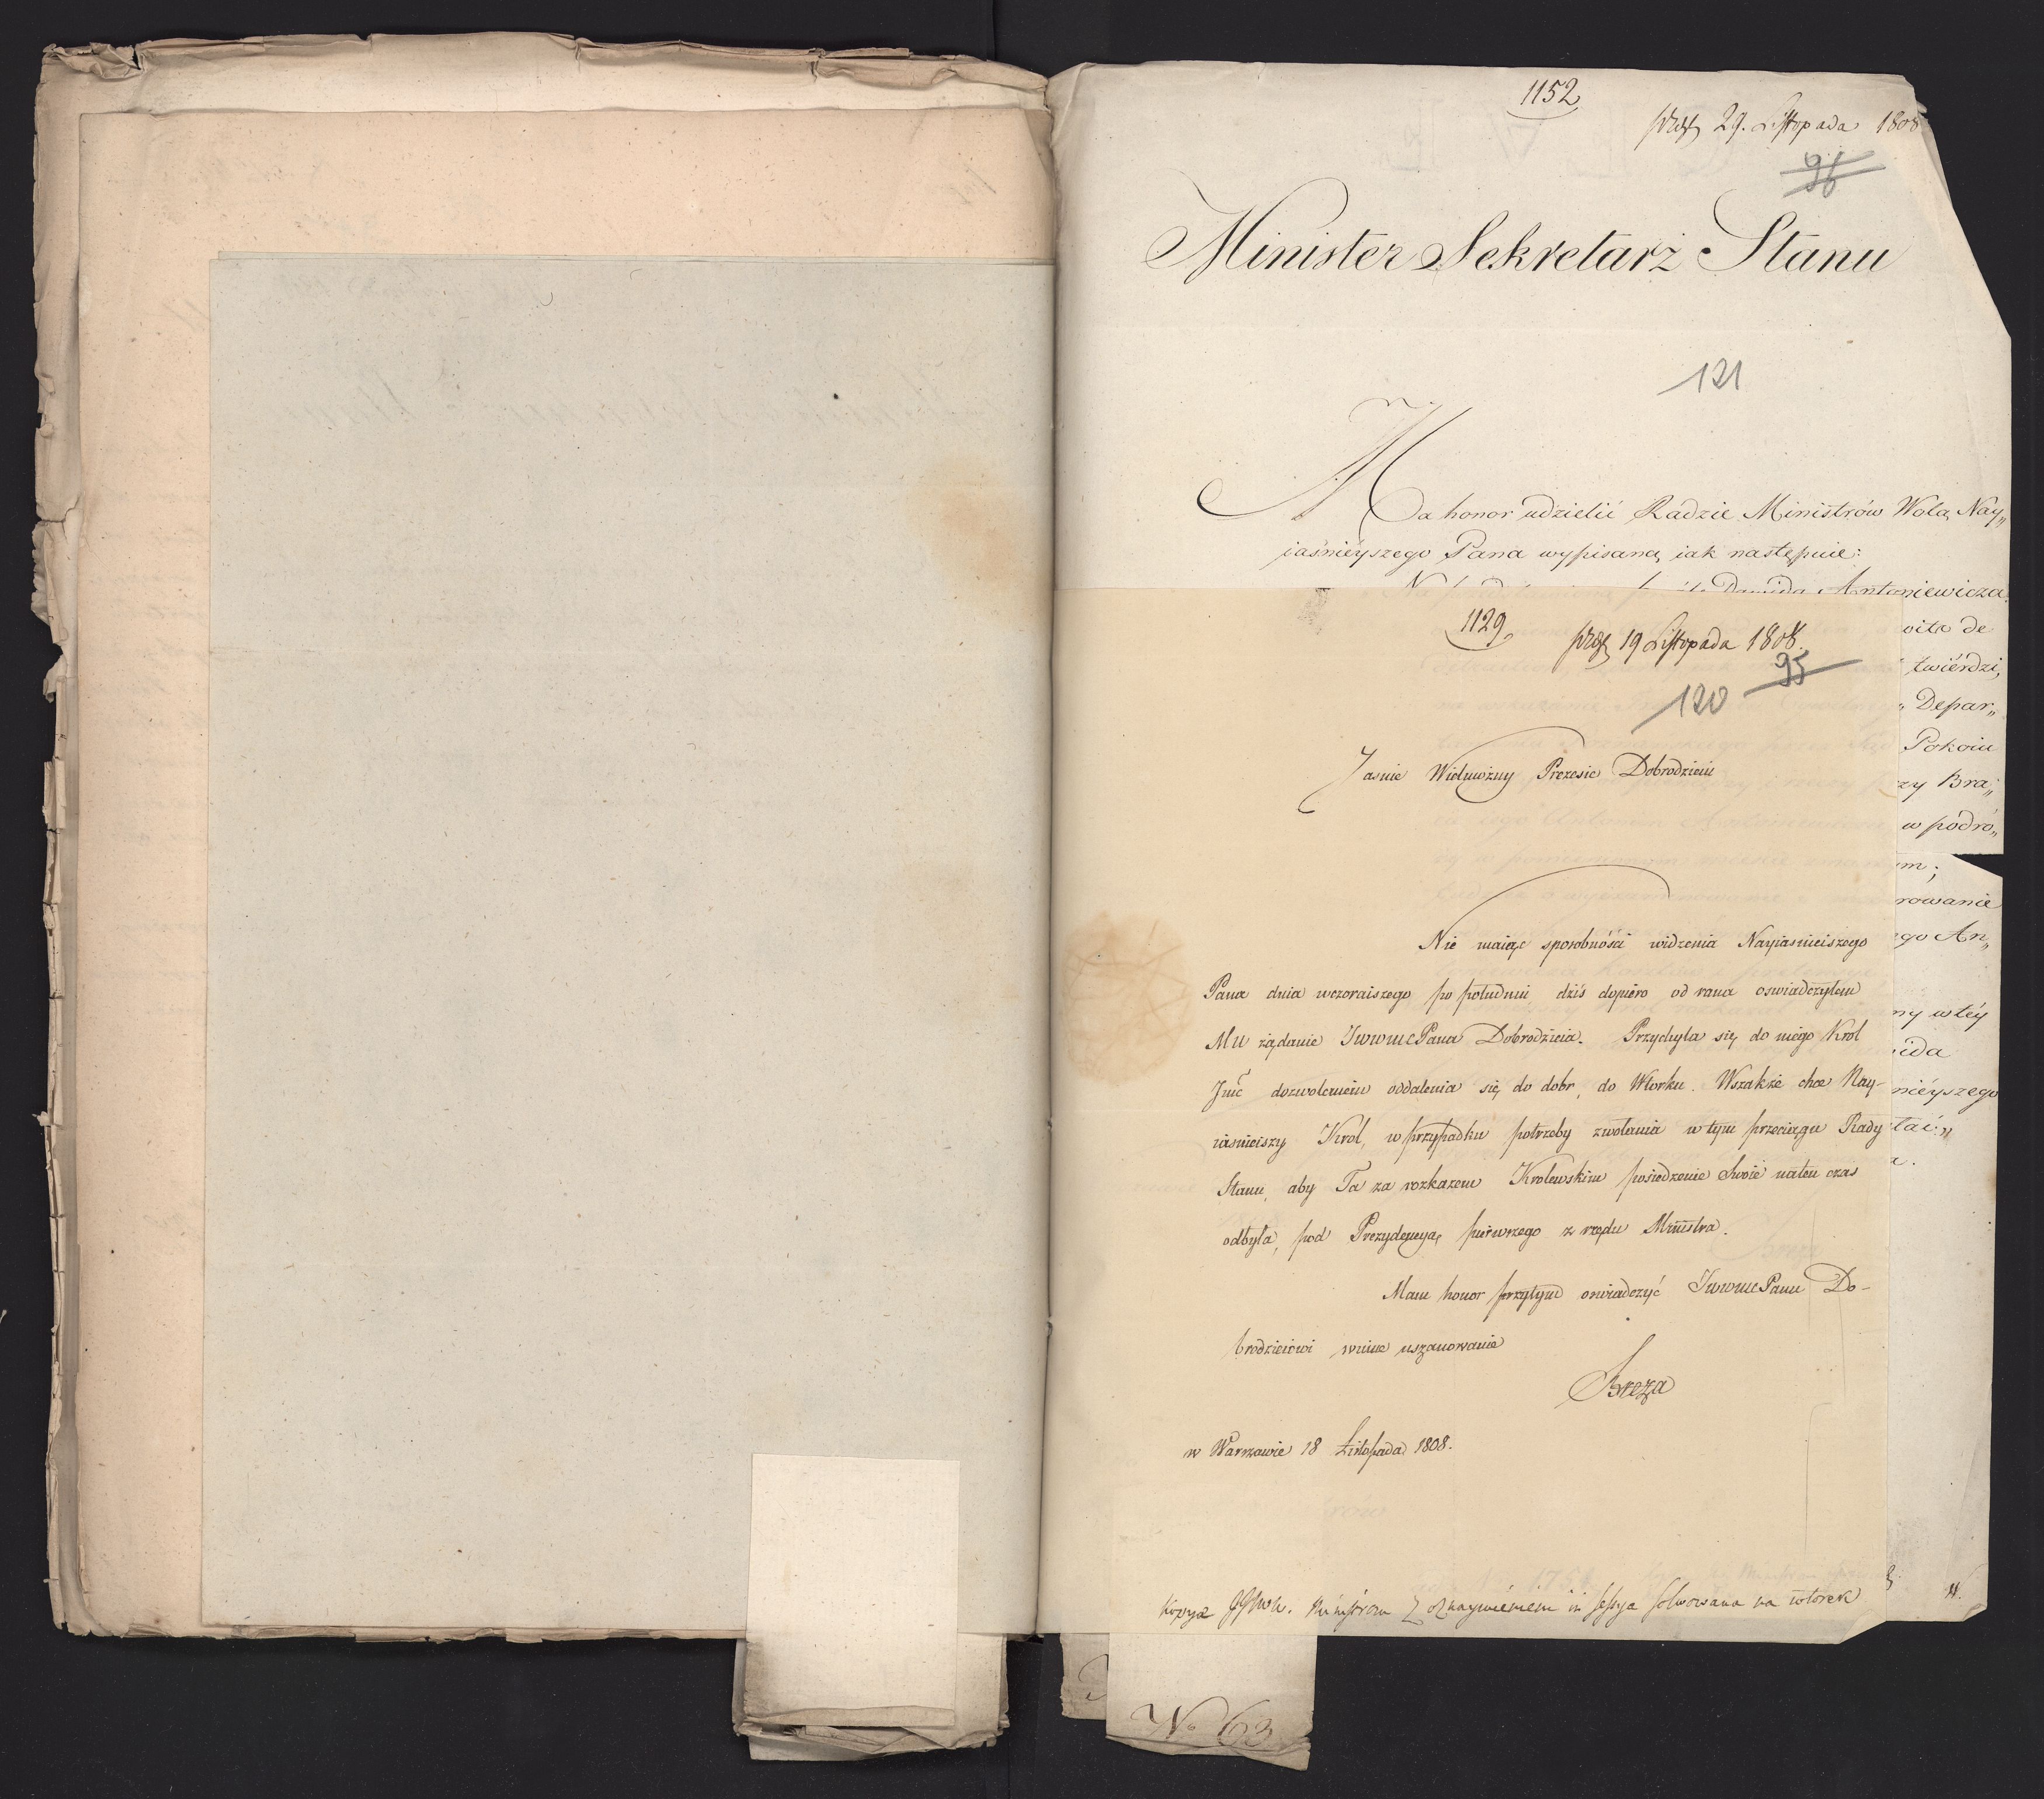 1152
29. Listopada 1808
96
Minister Sekretarz Stanu
121
Ma honor udzielić Radzie Ministrów Wolą Nay„
iaśnieyszego Pana wypisaną iak następuie:
Dawida Antoniewicza
de
twiérdzi,
„ Depar„
Pokoiu
zy Bra„
w podró„
m;
rowanie
go An„
ny w téy
ida
nieyszego
tai„
a.
1129
19 Listopada 1808.
95
120
Jasnie Wielmożny Prezesie Dobrodzieiu
Nie maiąc sposobności widzenia Nayiasnieiszego
Pana dnia wczoraiszego po południu, dziś dopiero od rana oswiadczyłem
Mu żądanie JWWMcPana Dobrodzieia. Przychyla się do niego Krol
Jmć dozwoleniem oddalenia się do dobr, do Wtorku. Wszakże chce Nay-
iasnieiszy Krol, w przypadku potrzeby zwołania w tym przeciągu Rady
Stanu, aby Ta za rozkazem Krolewskim posiedzenie Swoie natenczas
odbyła, pod Prezydencyą pierwszego z rzędu Ministra.
Mam honor przytym oswiadczyć JWWMcPanu Do-
brodzieiowi winne uszanowanie
Breza
w Warszawie 18 Listopada 1808.
Kopya Ministrom z oznaymieniem iż sessya solwowana na wtorek
No 63